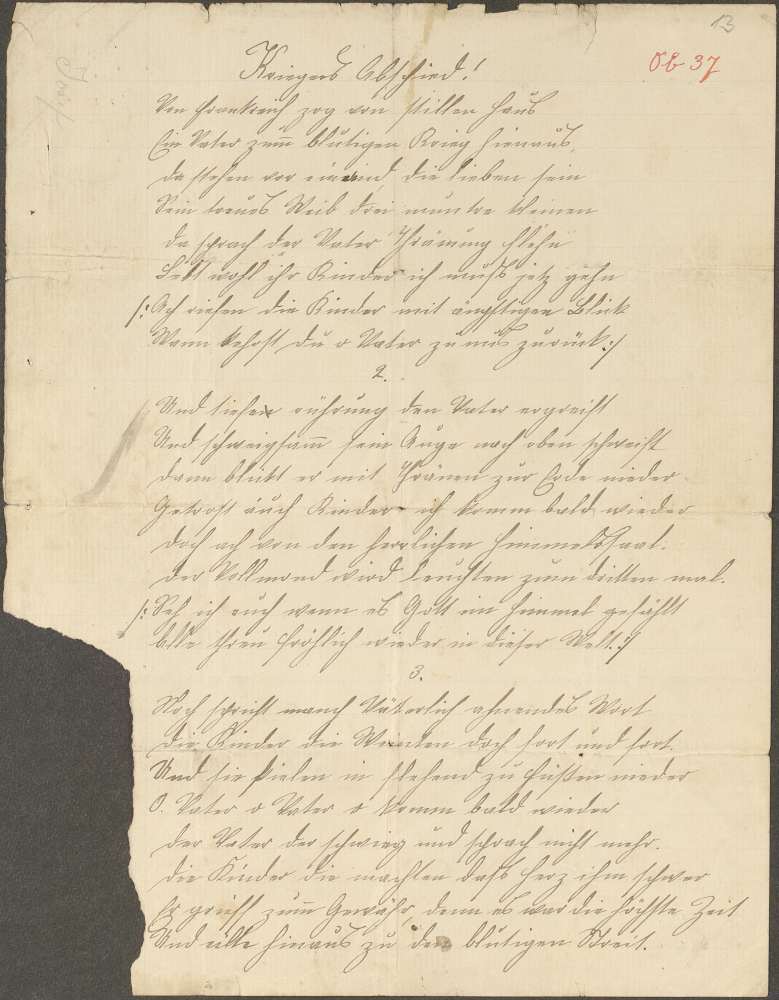 13
Ob 37
Kriegers Abschied!
Von Frankreich zog von stillen Haus
Ein Vater zum blutigen Krieg hinaus,
da stehen vor die lieben sein
Sein treues Weib drei muntre kleinen
da sprach der Vater
Lebt wohl ihr Kinder ich muß jetz gehn
/: Ach riefen die Kinder mit ängstigen Blick
Wann kehrst du o Vater zu uns zurück :/
2.
Und tiefe rührung den Vater ergreift
Und schweigsam sein Auge nach oben schweift
dann blickt er mit Thränen zur Erde nieder
Getrost auch Kinder ich komm bald wieder
doch ach von den herrlichen Himmelssaal.
der Vollmond wird leuchten zum dritten mal.
/: Seh ich euch wenn es Gott im Himmel gefählt
alle fröhlich wieder in dieser Welt. :/
3.
Noch spricht manch Väterlich ahnendes Wort
die Kinder die Weinten doch fort und fort.
Und sie fielen in flehend zu füßen nieder
O. Vater o Vater o komm bald wieder
der Vater der schwieg und sprach nicht mehr.
die Kinder die machten daß herz ihm schwer
Er griff zum Gewähr, denn es war die höchste Zeit
Und eilte hinaus zu den blutigen Streit.